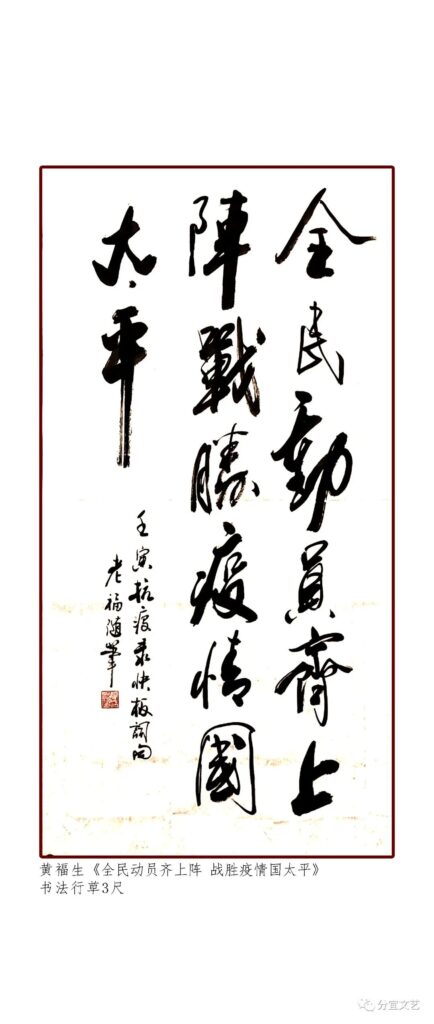 全民動員齊上
陣戰勝疫情國
太平
壬寅抗疫录快板詞句
老福随筆
黄福生《全民动员齐上阵 战胜疫情国太平》
书法行草3尺
分宜文艺